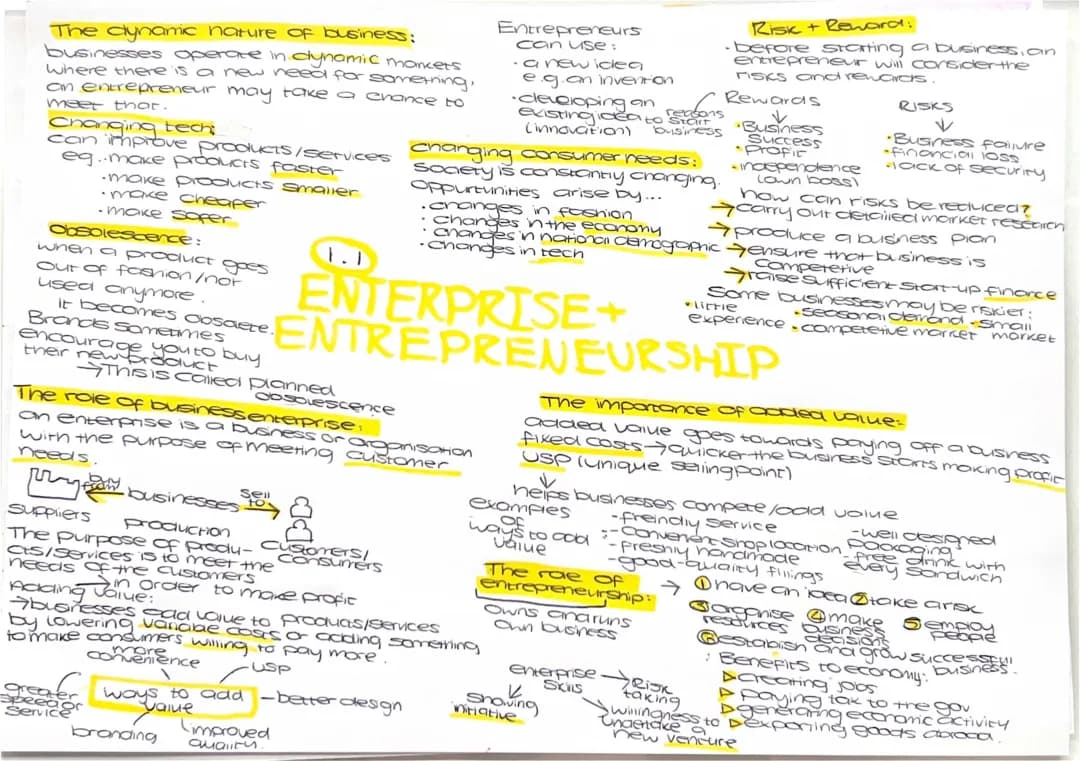 The dynamic nature of business:
businesses operate in dynamic markets
where there is a new need for something,
an entrepreneur may take a chance to
meet that.
Changing tech:
can improve products/services
eg. · make products faster
· make products smaller
· make cheaper
· make safer
Obsolescence:
when a product goes
out of fashion/not
used anymore.
It becomes obsolete.
Brands sometimes
encourage you to buy
their new product
→This is called planned
obsolescence
Entrepreneurs
can use:
· a new idea
e.g. an invention
· developing an
existing idea to
(innovation)
reasons
start
business
changing consumer needs:
Society is constantly changing.
Oppurtunities arise by...
· changes in fashion
· changes in the economy
· changes in national demographic
· changes in tech
Risk + Reward:
· before starting a business, an
entrepreneur will consider the
risks and rewards.
Rewards
· Business
success
· Profit
· independence
(own boss)
RISKS
· Business failure
· financial loss
· lack of security
how can risks be reduced?
→ carry out detailed market research
→ produce a business plan
→ ensure that business is
competetive
→ raise sufficient start-up finance
Some businesses may be riskier:
· little
experience
· seasonal demand
· small
market
· competetive market
1.1
ENTERPRISE +
ENTREPRENEURSHIP
The role of business enterprise:
an enterprise is a business or organisation
with the purpose of meeting customer
needs.
buy
from
businesses
sell
to
suppliers
production
customers/
consumers
The purpose of produ-
cts/services is to meet the
needs of the customers
→ in order to make profit
Adding value:
→ businesses add value to products/services
by lowering variable costs or adding something
to make consumers willing to pay more.
more
convenience
USP
greater
speed of
service
ways to add
value
better design
branding
improved
quality.
The importance of added value:
added value goes towards paying off a business
fixed costs → quicker the business starts making profit
USP (unique selling point)
helps businesses compete/add value
examples
of
ways to add
value
:- freindly service
- Convenient shop location
- freshly handmade
- good-quality fillings
- well designed
packaging
- free drink with
every sandwich
The role of
entrepreneurship:
owns and runs
own business
→ ① have an idea ② take a risk
③ organise
resources
④ make
business
decisions
⑤ employ
people
⑥ establish and grow successful
business.
: Benefits to economy:
▷ creating jobs
▷ paying tax to the gov
▷ generating economic activity
▷ exporting goods abroad.
enterprise
skills
→ Risk
taking
showing
initiative
willingness to
undetake a
new venture